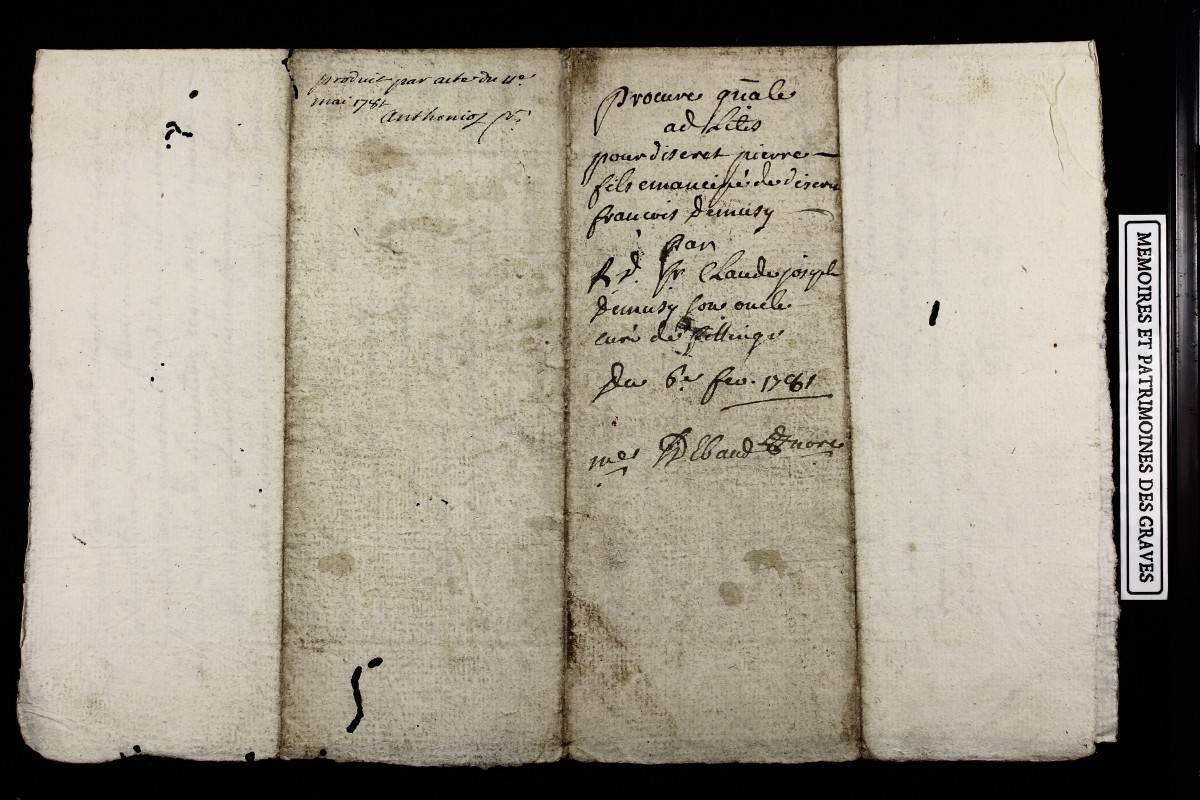 produit par acte du 4e
mai 1781
Anthonioz
Procure gnãle
ad Lites
pour discret pierre
fils emancipé de discret
francois Demusy
par
Rd. Sr Claude joseph
Demusy son oncle
curé de fillinge
Du 6e fev. 1781
mes nore
MEMOIRES ET PATRIMOINES DES GRAVES